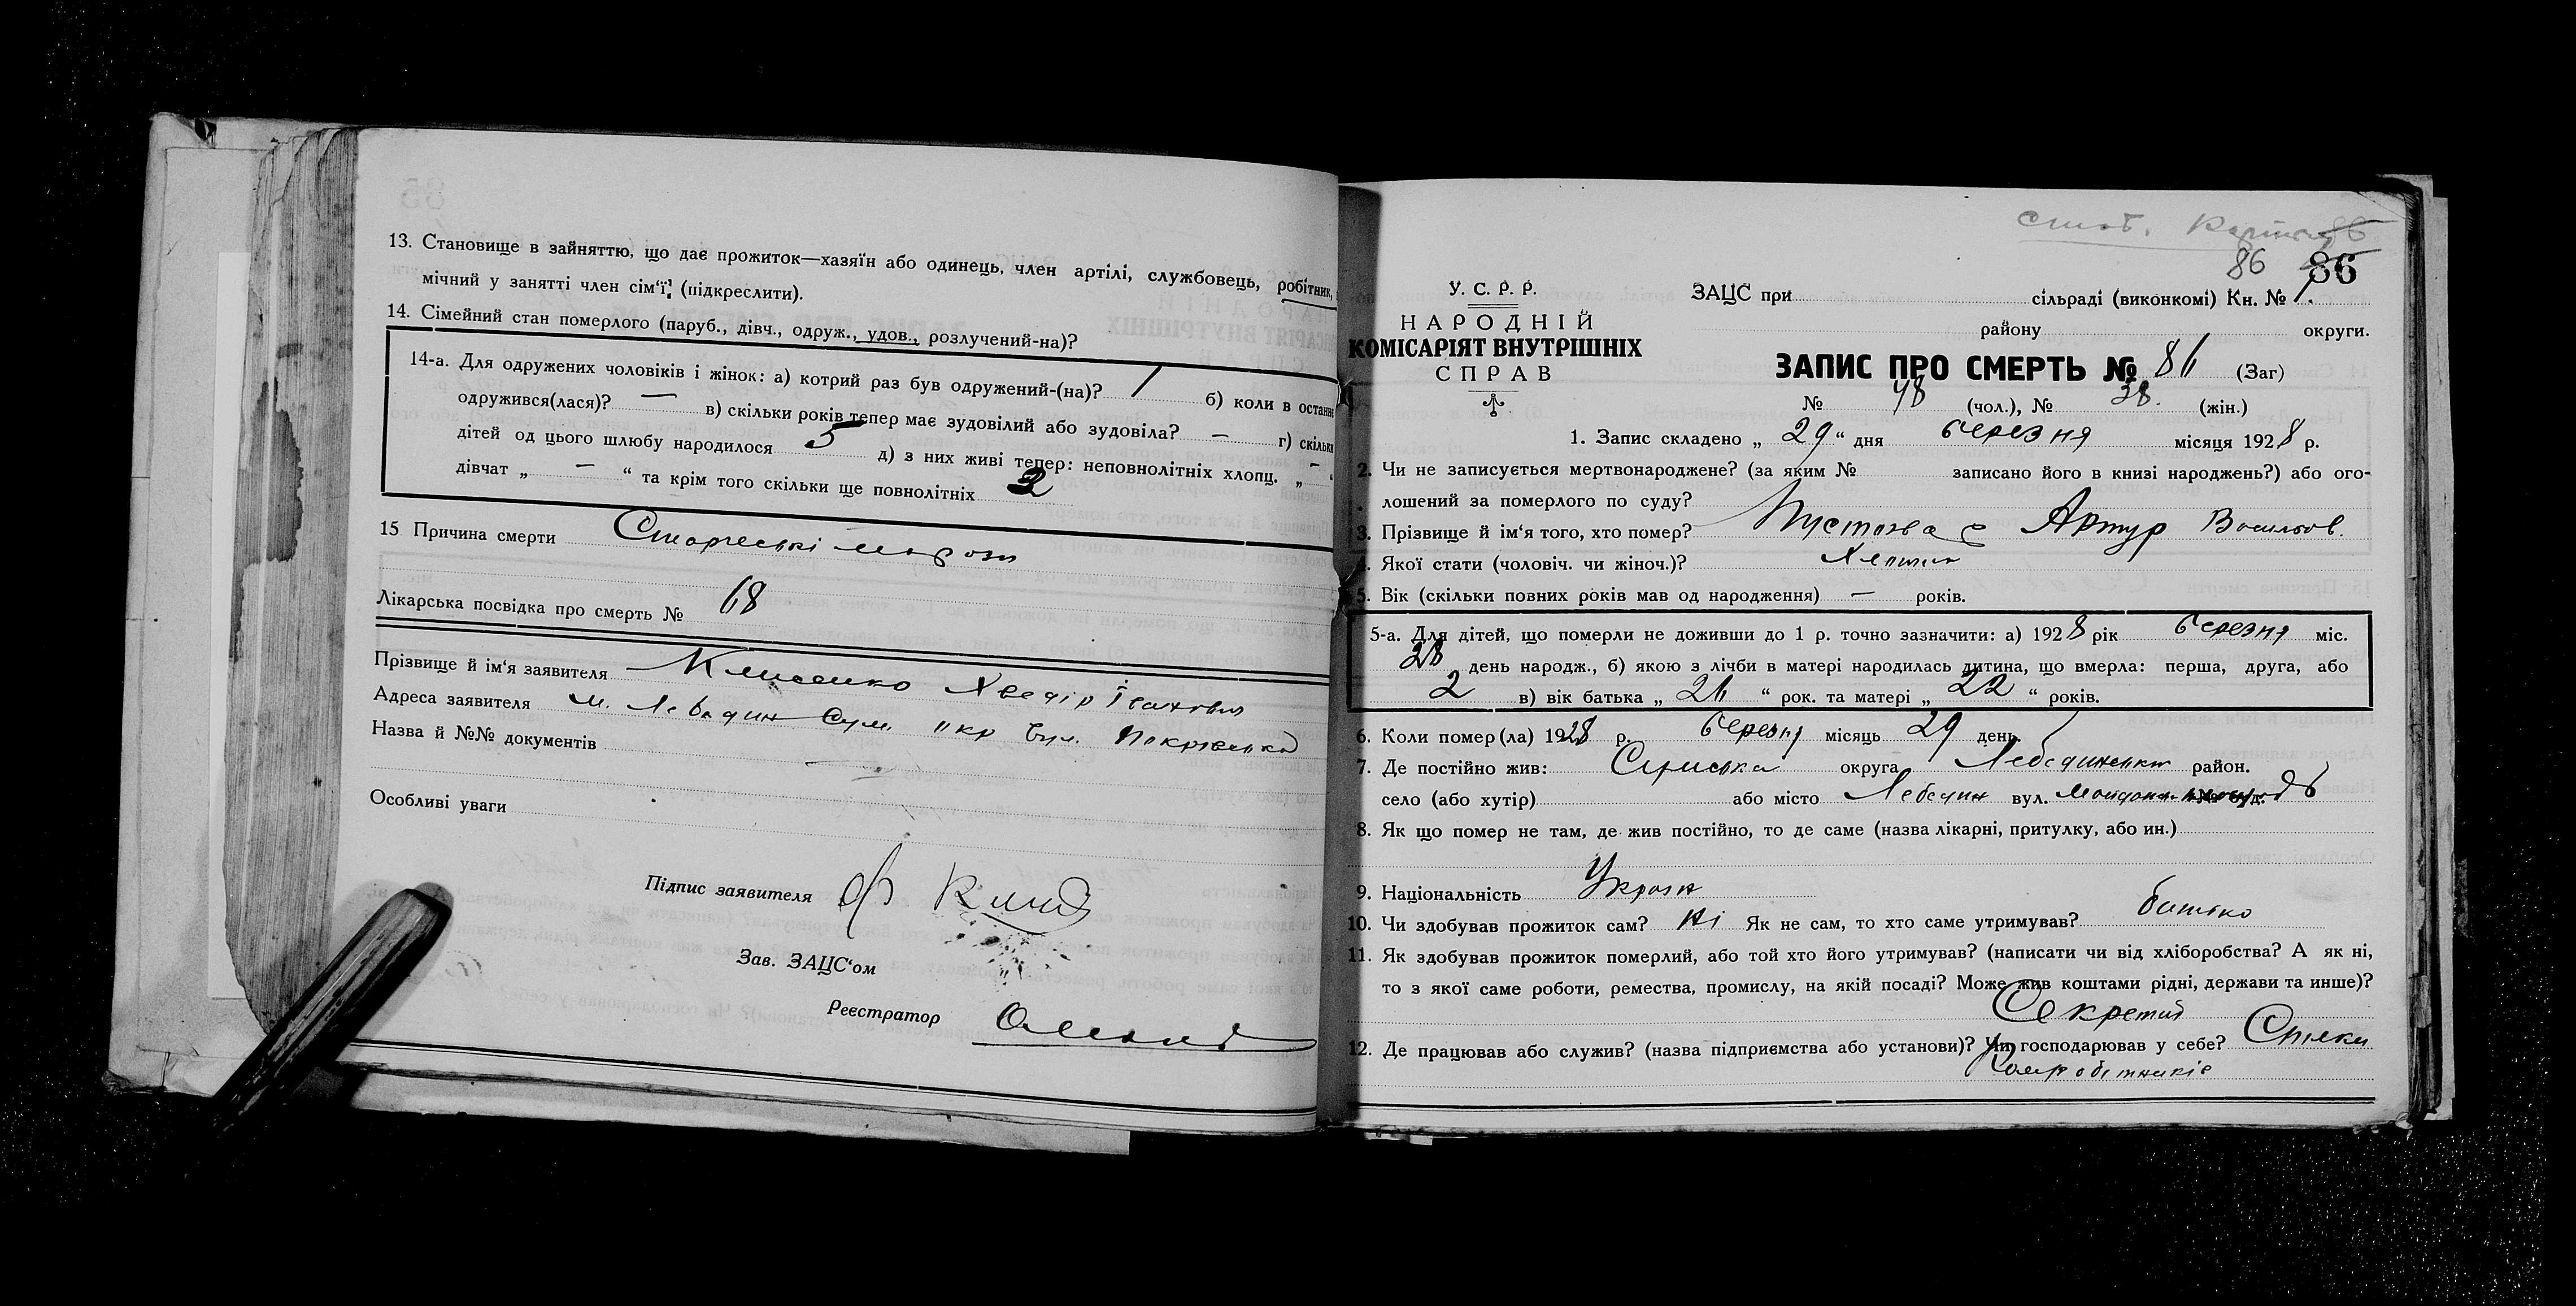 13. Становище в зайняттю, що дає прожиток—хазяїн або одинець, член артілі, службовець, робітник,
мічний у занятті член сім'ї (підкреслити).
14. Сімейний стан померлого (паруб., дівч., одруж., удов., розлучений-на)?
14-а. Для одружених чоловіків і жінок: а) котрий раз був одружений-(на)? 1 б) коли в останнє
одружився(лася)? — в) скільки років тепер має зудовілий або зудовіла? — г) скільки
дітей од цього шлюбу народилося 5 д) з них живі тепер: неповнолітніх хлопц. „ — "
дівчат „ — " та крім того скільки ще повнолітніх
15 Причина смерти
Лікарська посвідка про смерть № 68
Прізвище й ім'я заявителя Клисенко Хведір Іванович
Адреса заявителя м. Лебедин Сум. окр вул. Покровська
Назва й №№ документів
Особливі уваги
Підпис заявителя
Зав. ЗАЦС'ом
Реєстратор
86
86
У. С. Р. Р.
НАРОДНІЙ
КОМІСАРІЯТ ВНУТРІШНІХ
СПРАВ
ЗАЦС при сільраді (виконкомі) Кн. № 1.
району округи.
ЗАПИС ПРО СМЕРТЬ № 86 (Заг)
№ 48 (чол.), № 38. (жін.)
1. Запис складено „ 29 " дня березня місяця 1928 р.
2. Чи не записується мертвонароджене? (за яким № записано його в книзі народжень?) або ого-
лошений за померлого по суду?
3. Прізвище й ім'я того, хто помер? Артур
4. Якої стати (чоловіч. чи жіноч.)? Хлопчик
5. Вік (скільки повних років мав од народження) — років.
5-а. Для дітей, що померли не доживши до 1 р. точно зазначити: а) 1928 рік березня міс.
28 день народж., б) якою з лічби в матері народилась дитина, що вмерла: перша, друга, або
2 в) вік батька „ 26 " рок. та матері „ 22 " років.
6. Коли помер(ла) 1928 р. березня місяць 29 день.
7. Де постійно жив: Сумська округа Лебединський район.
село (або хутір) або місто Лебедин вул. № буд.
8. Як що помер не там, де жив постійно, то де саме (назва лікарні, притулку, або ин.)
9. Національність Україн
10. Чи здобував прожиток сам? ні Як не сам, то хто саме утримував? батько
11. Як здобував прожиток померлий, або той хто його утримував? (написати чи від хліборобства? А як ні,
то з якої саме роботи, ремества, промислу, на якій посаді? Може жив коштами рідні, держави та инше)?
12. Де працював або служив? (назва підприємства або установи)? Чи господарював у себе? Спілки